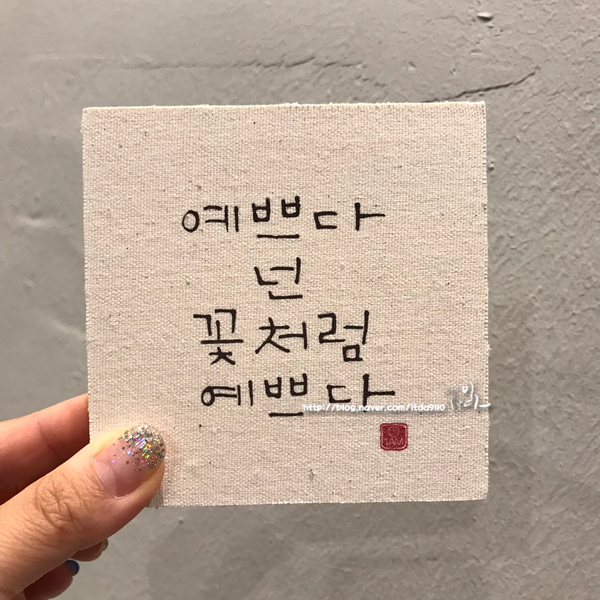 예쁘다
넌
꽃처럼
예쁘다
http://blog.naver.com/itda9110